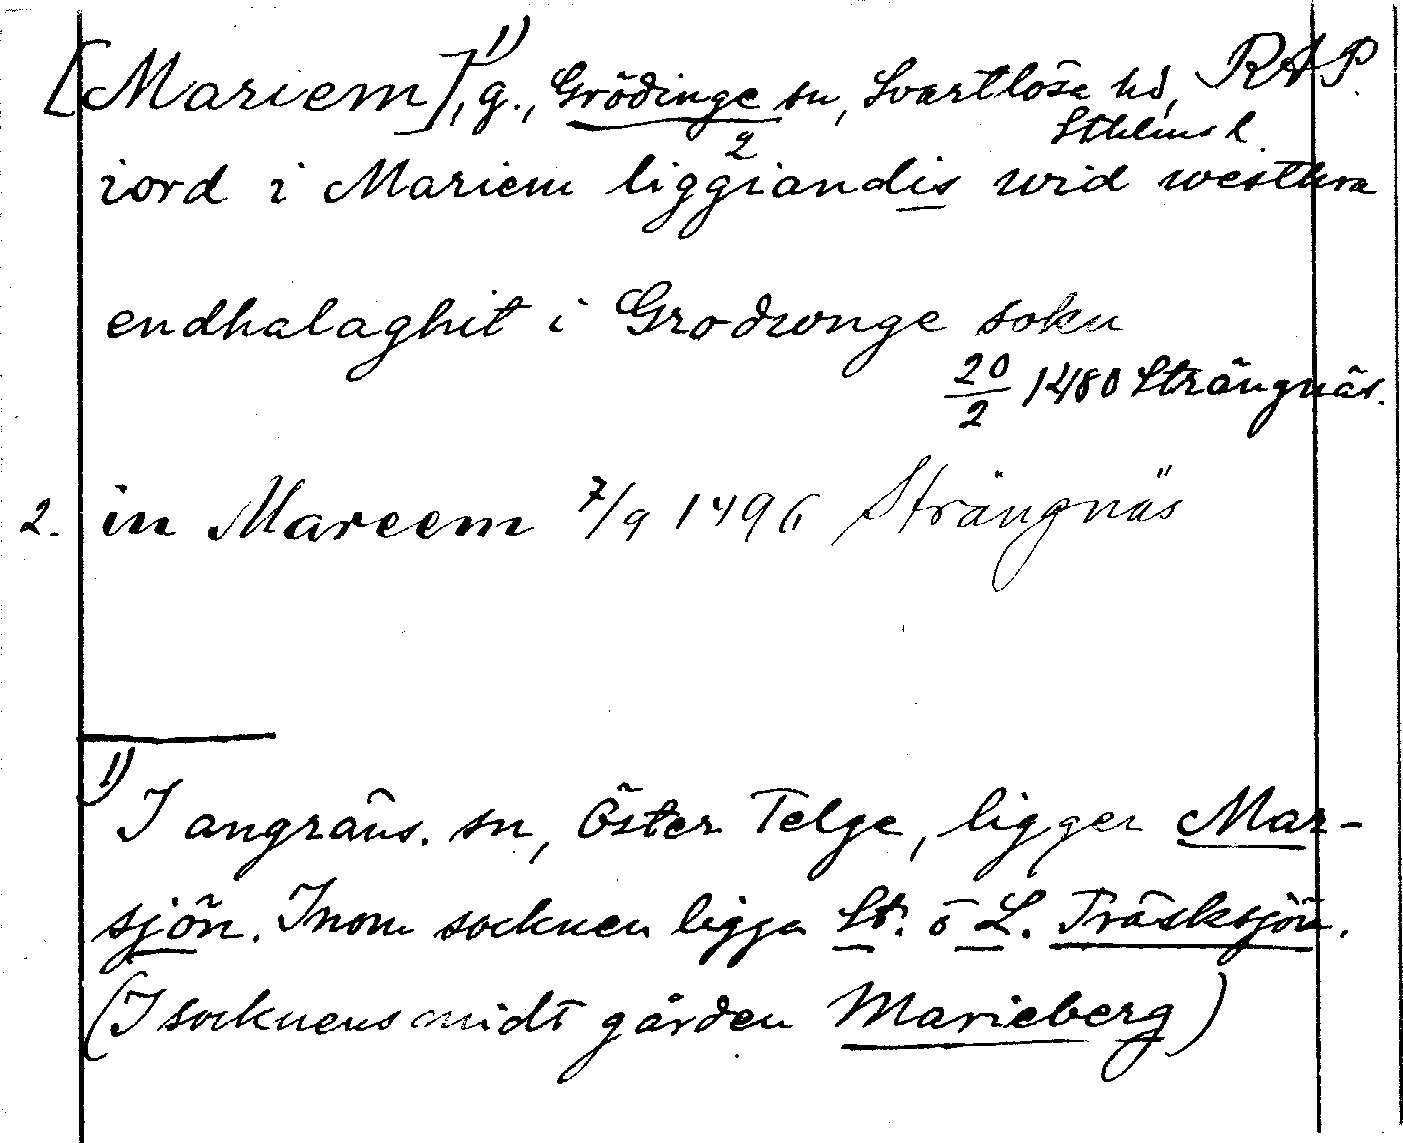 [Mariem],¹⁾ g., Grödinge sn, Svartlösa hd, RAP.
Sthlms l.
2
iord i Mariem liggiandis wid westhra
endhalaghit i Grodwnge sokn
20/2 1480 Strängnäs.
2. in Mareem 7/9 1496 Strängnäs
1) I angräns. sn, Öster Telge, ligger Mar-
sjön. Inom socknen ligga St. o L. Träsksjön.
(I socknens midt gården Marieberg)